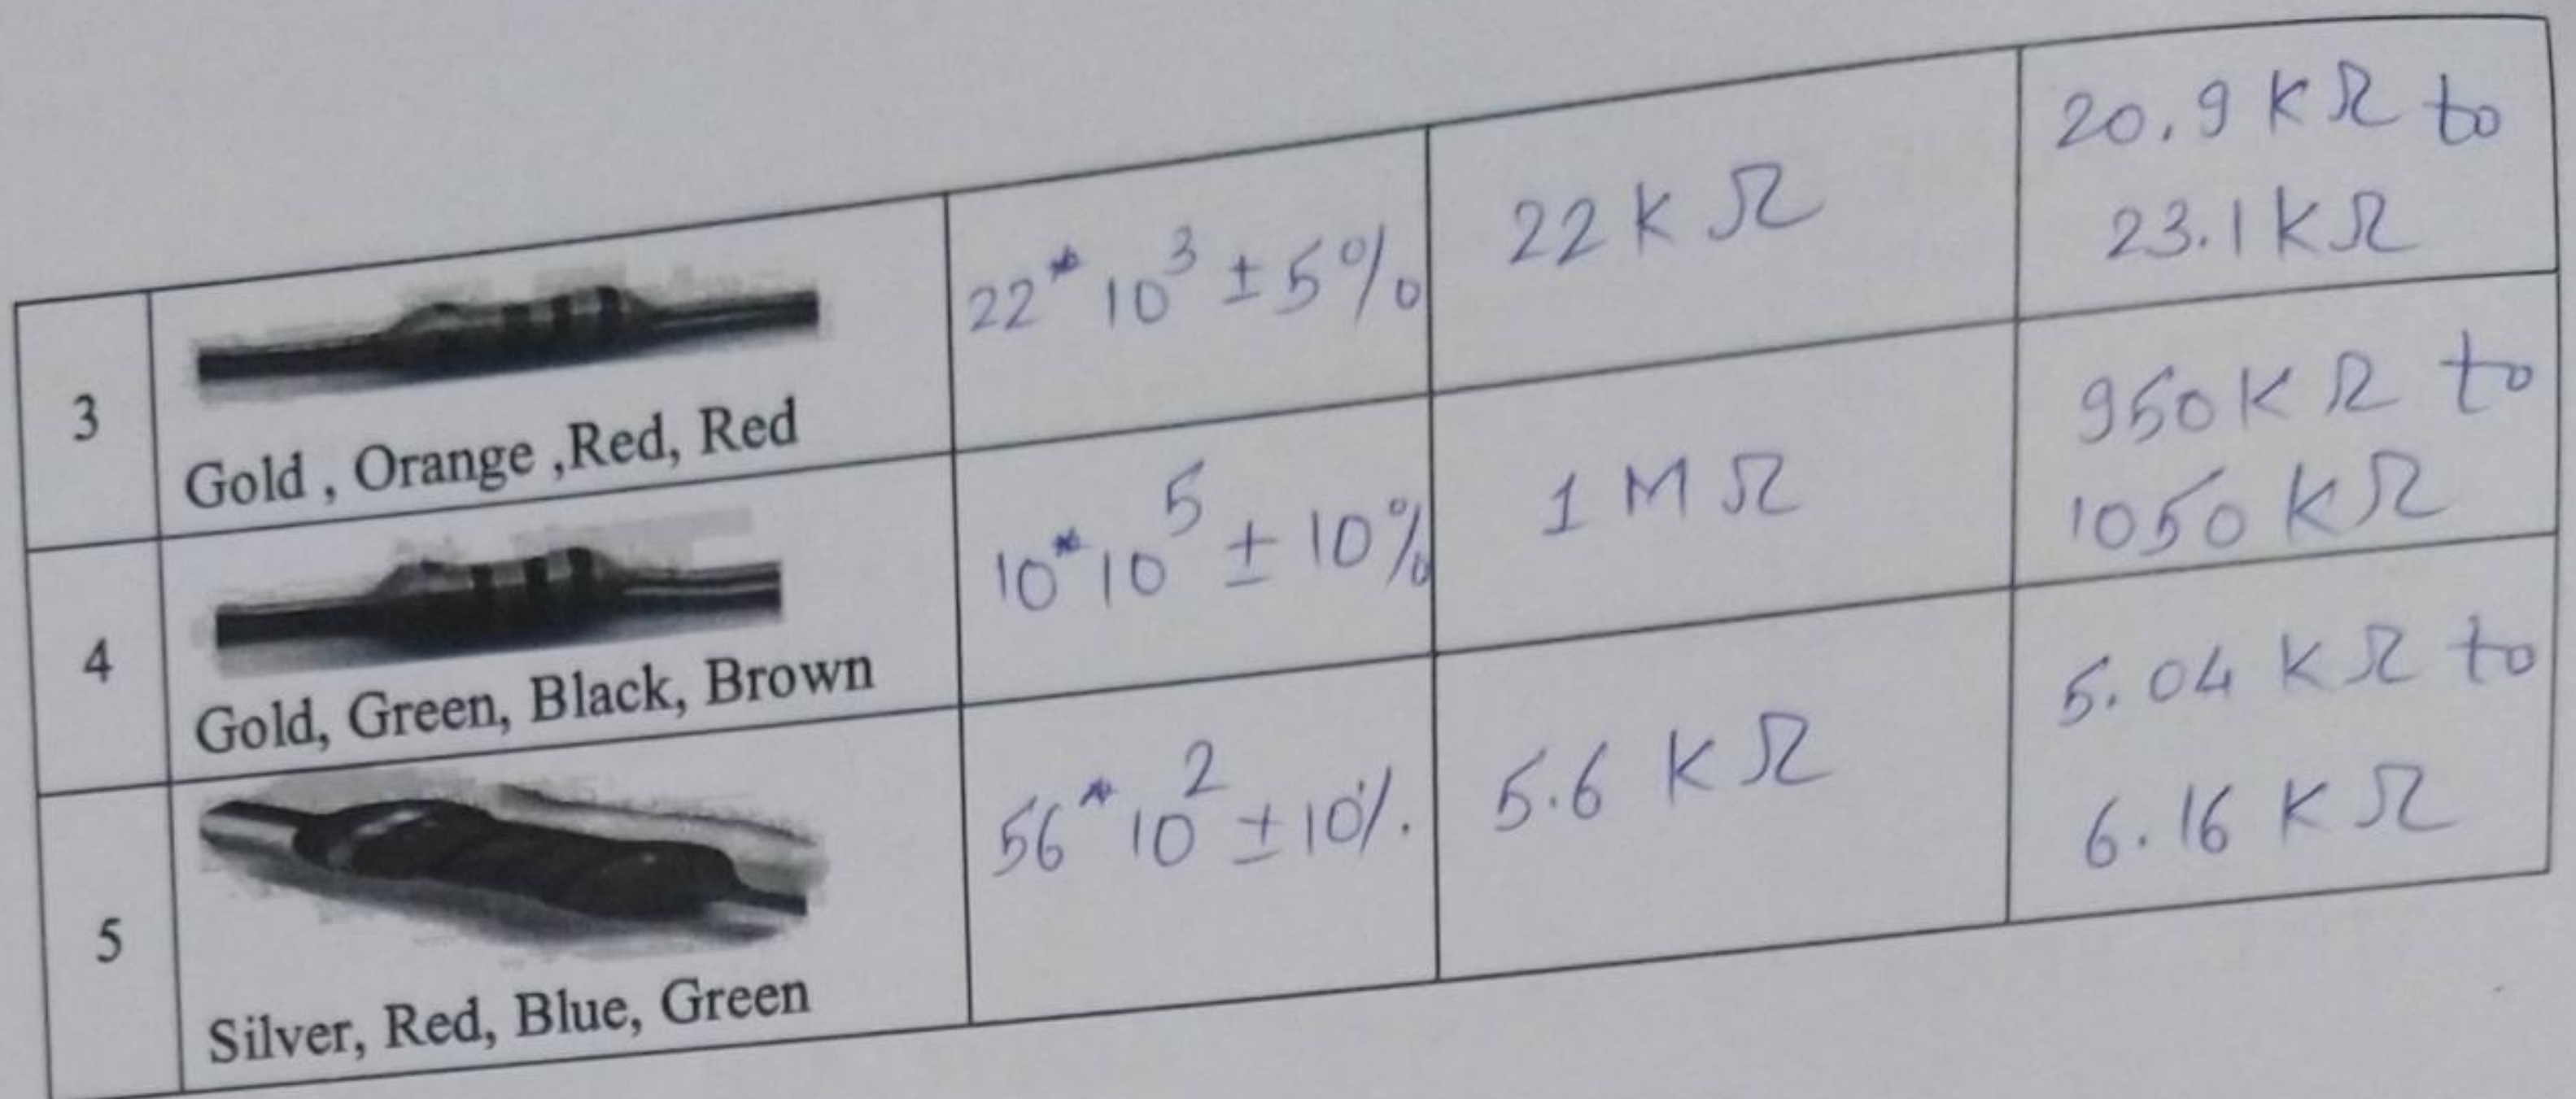 3
Gold , Orange ,Red, Red
22* 10³ ± 5%
22 k Ω
20.9 K Ω to
23.1 k Ω
4
Gold, Green, Black, Brown
10* 10⁵ ± 10%
1 M Ω
950 K Ω to
1050 K Ω
5
Silver, Red, Blue, Green
56* 10² ± 10%.
5.6 K Ω
5.04 K Ω to
6.16 K Ω